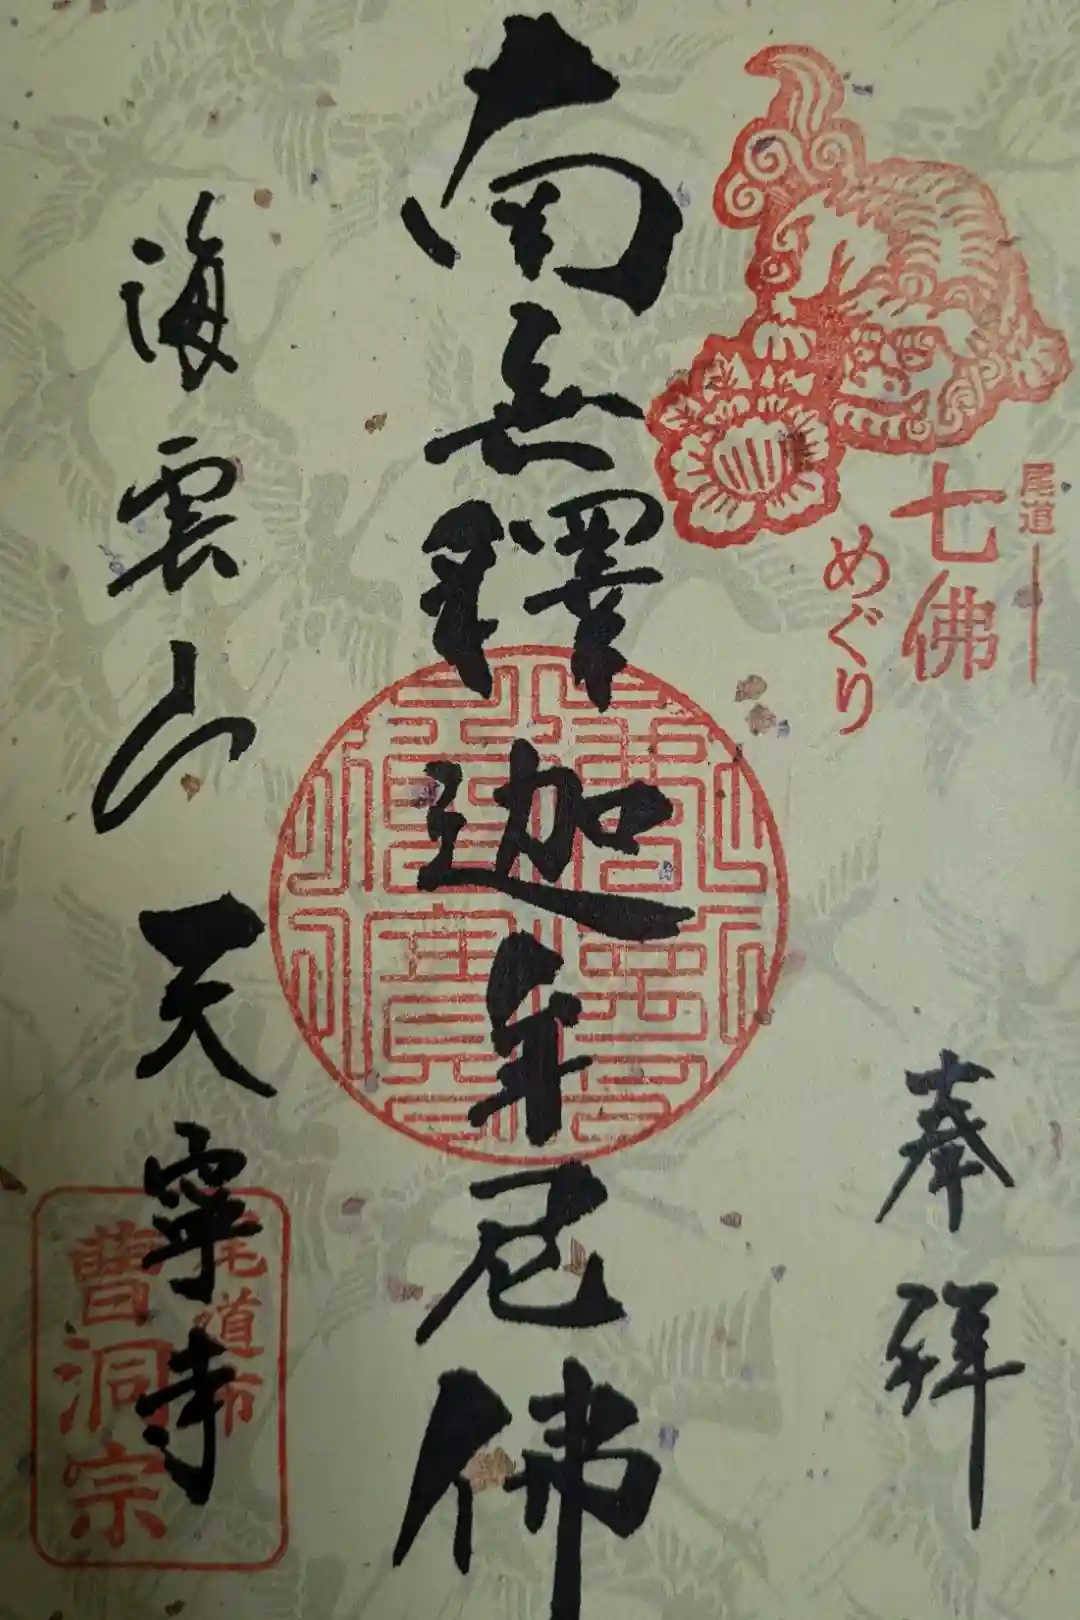 尾道
七佛
めぐり
奉拝
南無釋迦牟尼佛
海雲山天寧寺
尾道市
曹洞宗